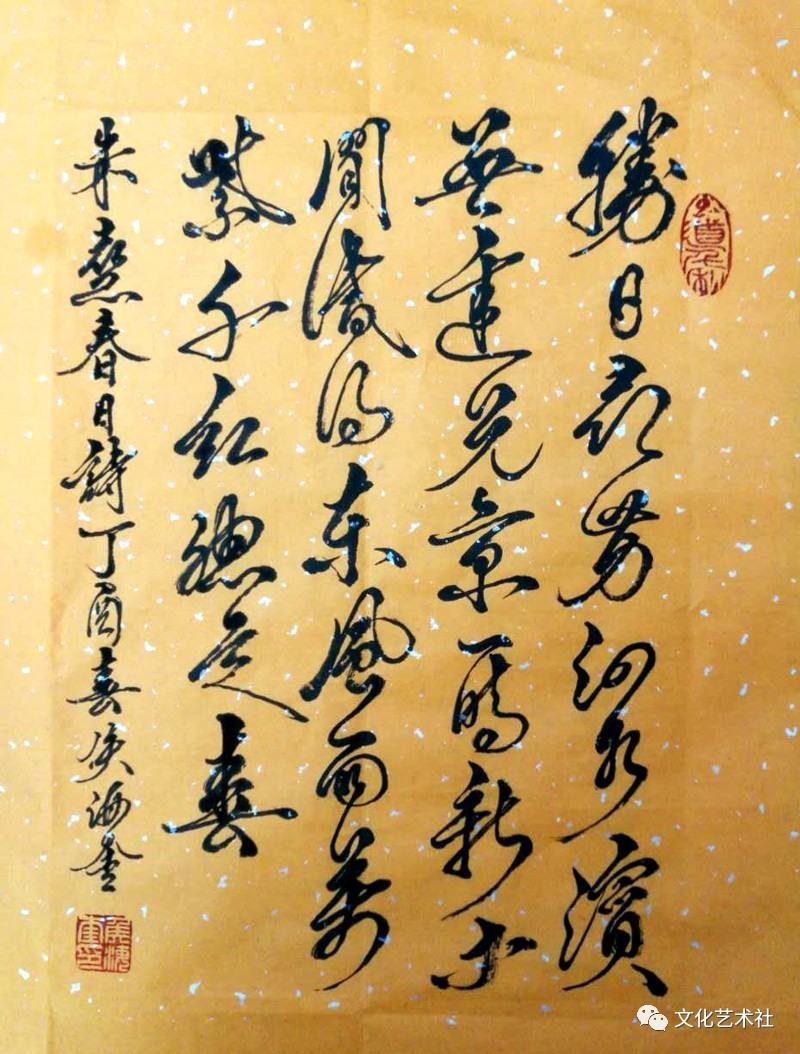 勝日尋芳泗水濱
無邊光景一時新等
閒識得東風面萬
紫千紅總是春
朱熹春日詩丁酉侯海
文化艺术社